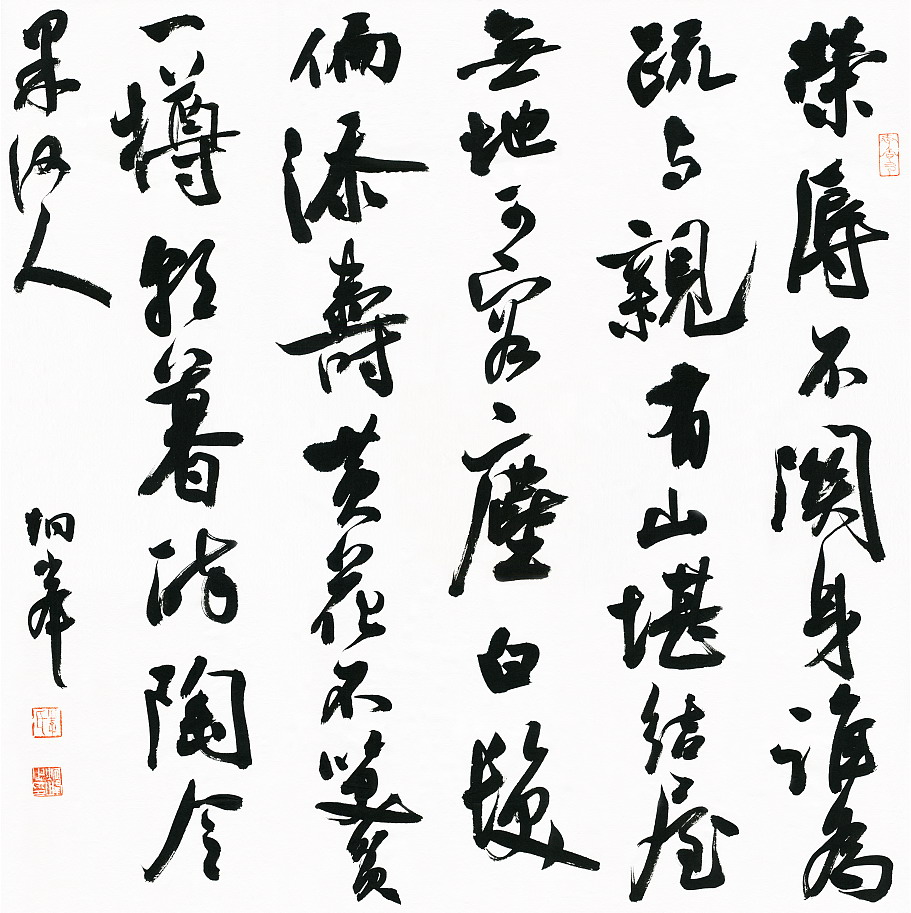 榮辱不關身誰為
疏与親有山堪結屋
無地可容塵白髮
偏添壽黃花不笑貧
一樽朝暮醉陶令
果何人
炯峯